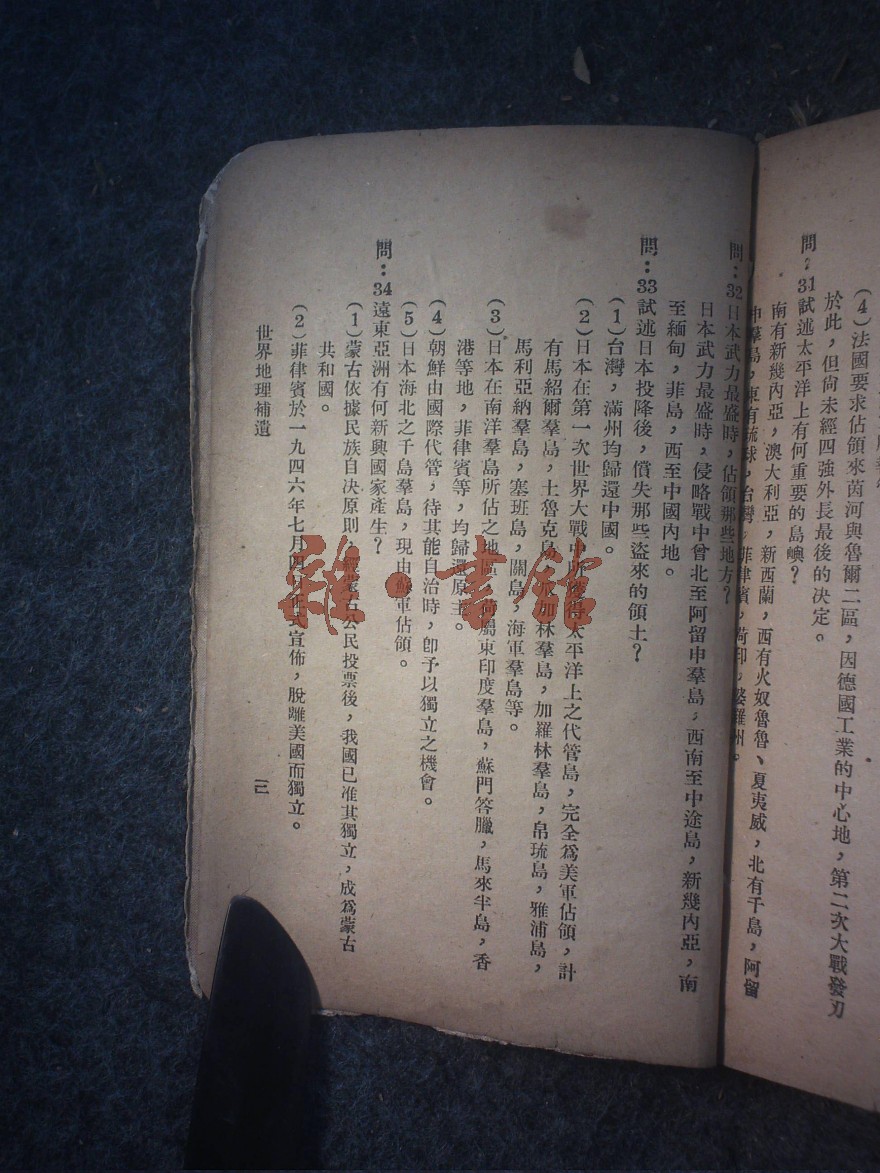 （4）法國要求佔領來茵河與魯爾二區，因德國工業的中心地，第二次大戰發刃
於此，但尙未經四強外長最後的決定。
問：31試述太平洋上有何重要的島嶼？
南有新幾內亞，澳大利亞，新西蘭，西有火奴魯魯、夏夷威，北有千島，阿留
申羣島，東有琉球，台灣，菲律賓，荷印，婆羅州。
問：32日本武力最盛時，佔領那些地方？
日本武力最盛時，侵略戰中曾北至阿留申羣島，西南至中途島，新幾內亞，南
至緬甸，菲島，西至中國內地。
問：33試述日本投降後，償失那些盜來的領土？
（1）台灣，滿州均歸還中國。
（2）日本在第一次世界大戰中所獲得太平洋上之代管島，完全爲美軍佔領，計
有馬紹爾羣島，土魯克島，加林羣島，加羅林羣島，帛琉島，雅浦島，
馬利亞納羣島，塞班島，關島，海軍羣島等。
（3）日本在南洋羣島所佔之地區，荷屬東印度羣島，蘇門答臘，馬來半島，香
港等地，菲律賓等，均歸還原主。
（4）朝鮮由國際代管，待其能自治時，卽予以獨立之機會。
（5）日本海北之千島羣島，現由蘇軍佔領。
問：34遠東亞洲有何新興國家產生？
（1）蒙古依據民族自决原則，經蒙古公民投票後，我國已准其獨立，成爲蒙古
共和國。
（2）菲律賓於一九四六年七月四日正式宣佈，脫離美國而獨立。
世界地理補遺
三
雜·書館